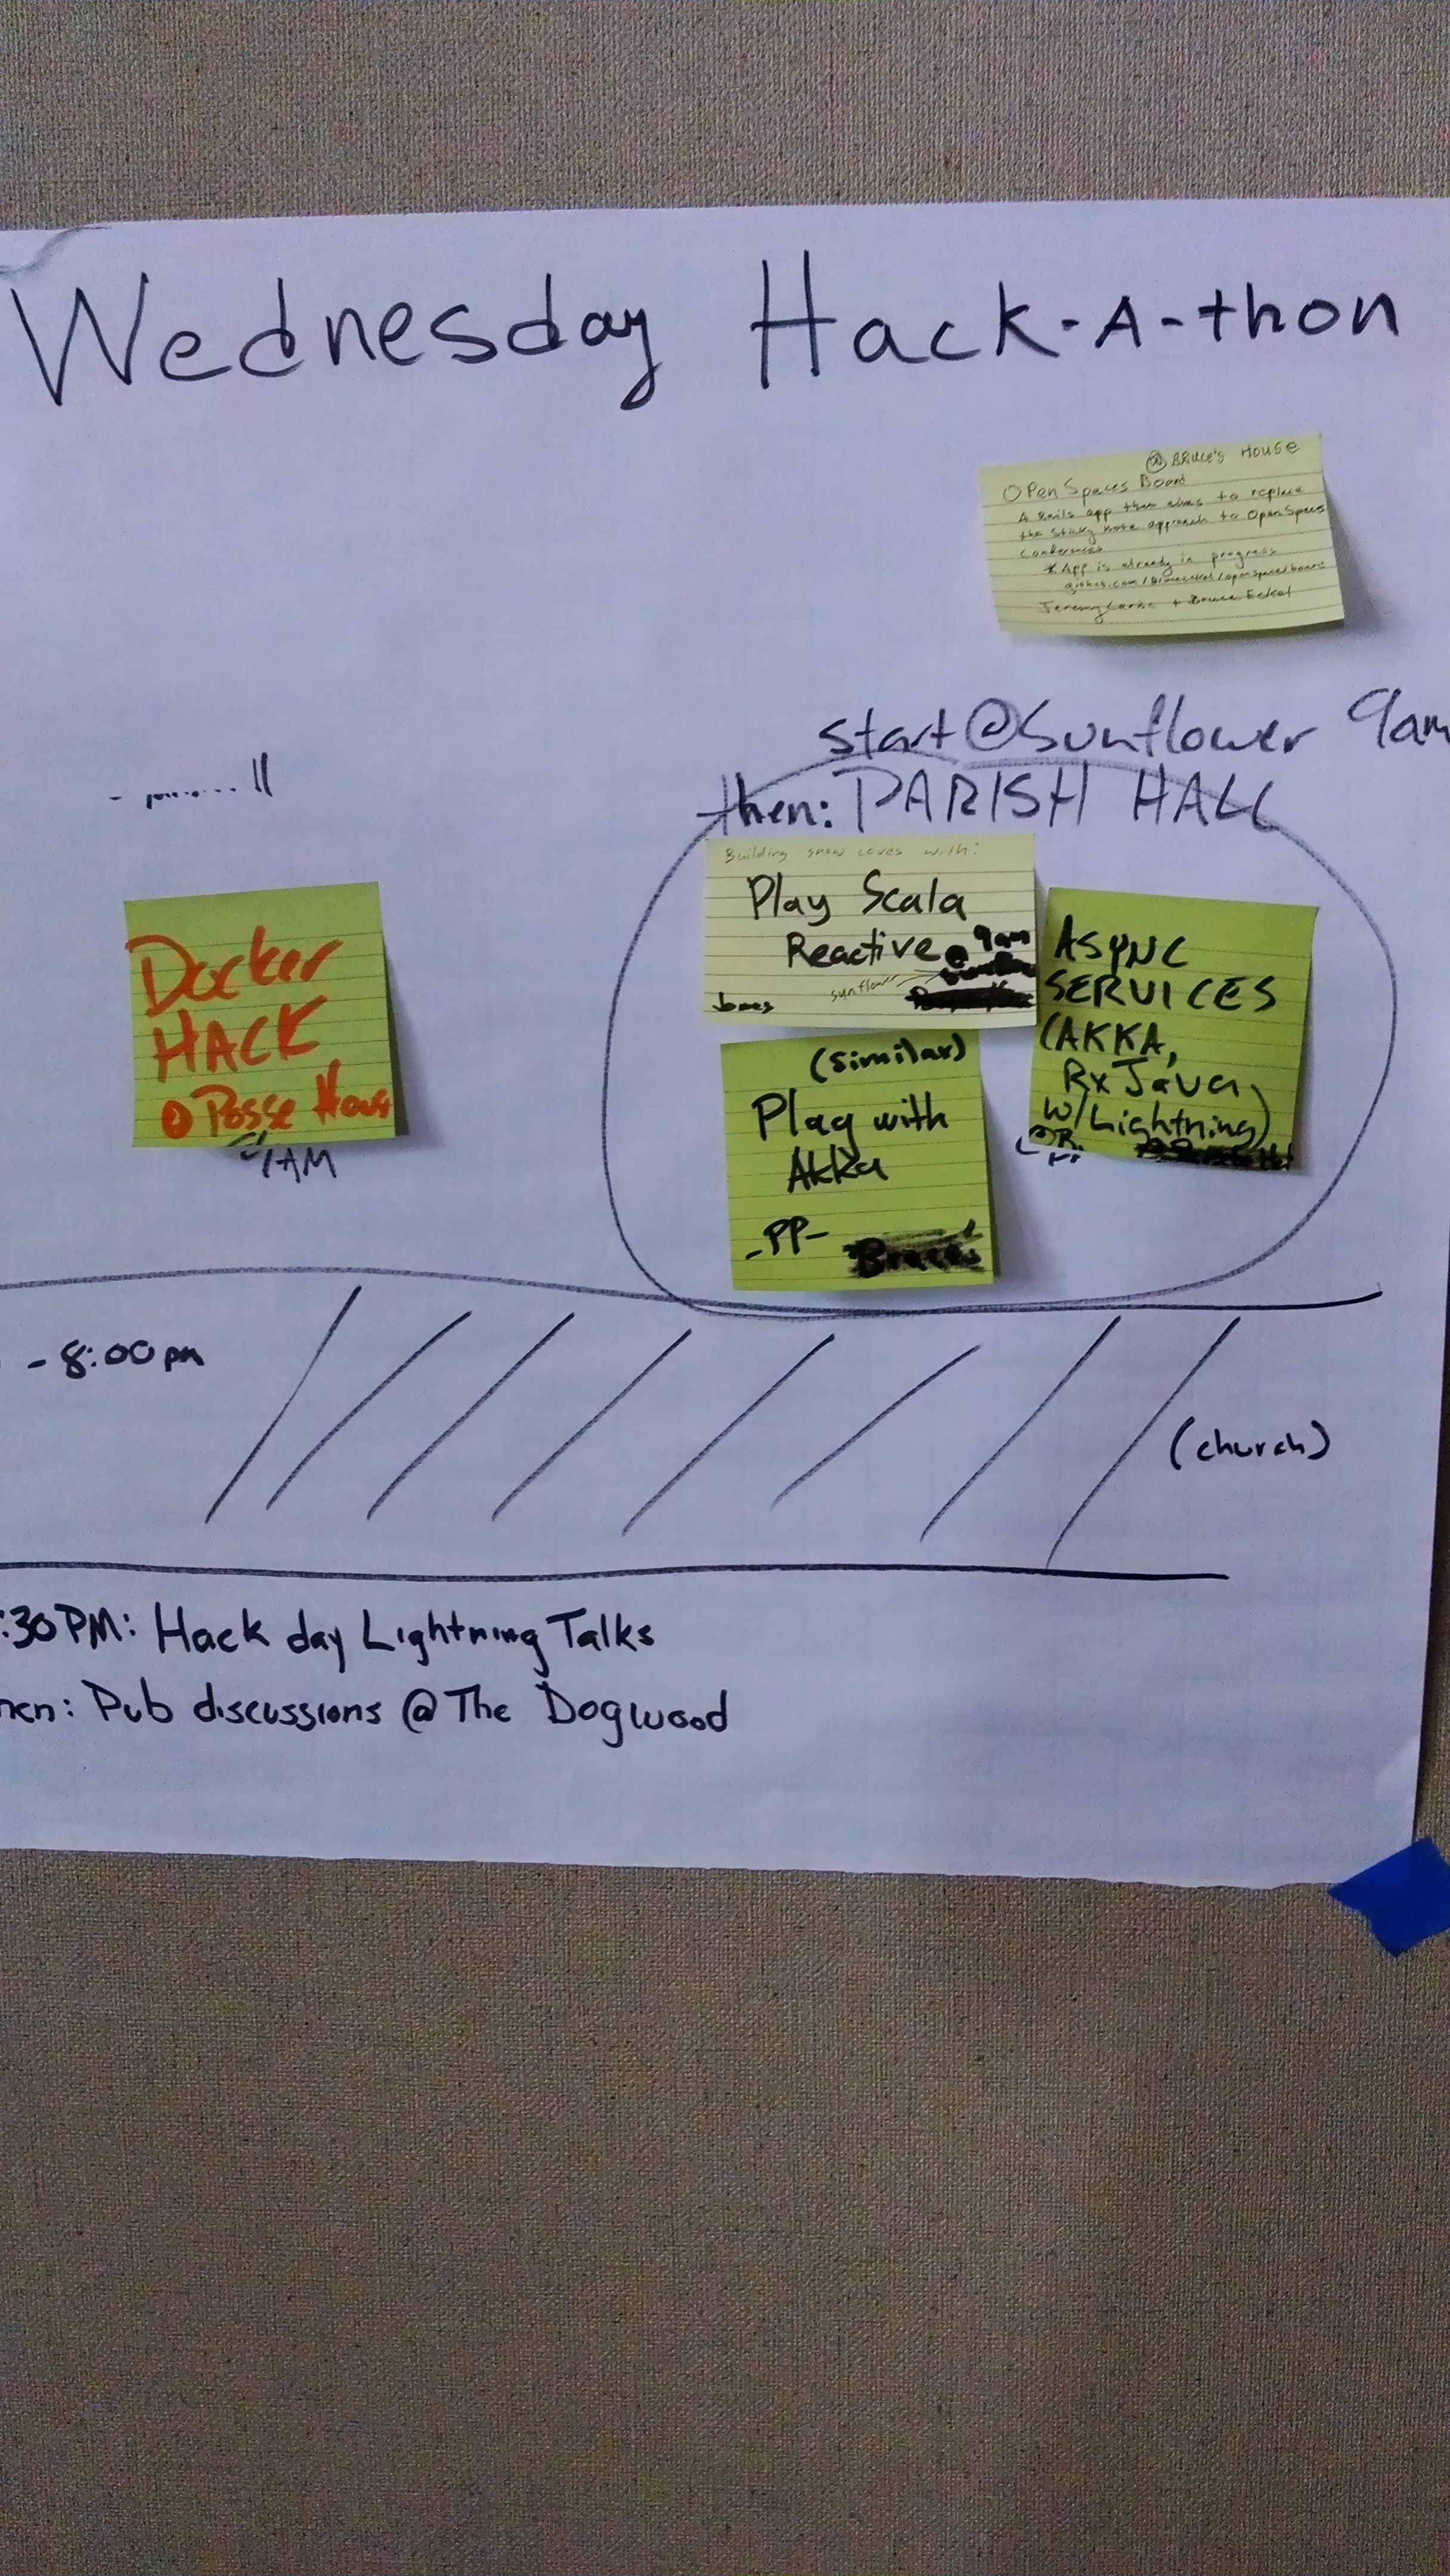 Wednesday Hack-A-thon
@ BRuce's House
OPen Spaces Board
A Rails app that aims to replace
the sticky note approach to OpenSpaces
Conferences
*App is already in progress
github.com/
+ Bruce Eckel
start@Sunflower 9am
then: PARISH HALL
Building snow caves with:
Play Scala
Reactive @ 9am
sunflower
James
Docker
HACK
@ Posse House
9AM
ASYNC
SERVICES
(AKKA,
RxJava,
w/Lightning)
(similar)
Play with
Akka
-PP-
-8:00pm
(church)
:30PM: Hack day Lightning Talks
hen: Pub discussions @ The Dogwood